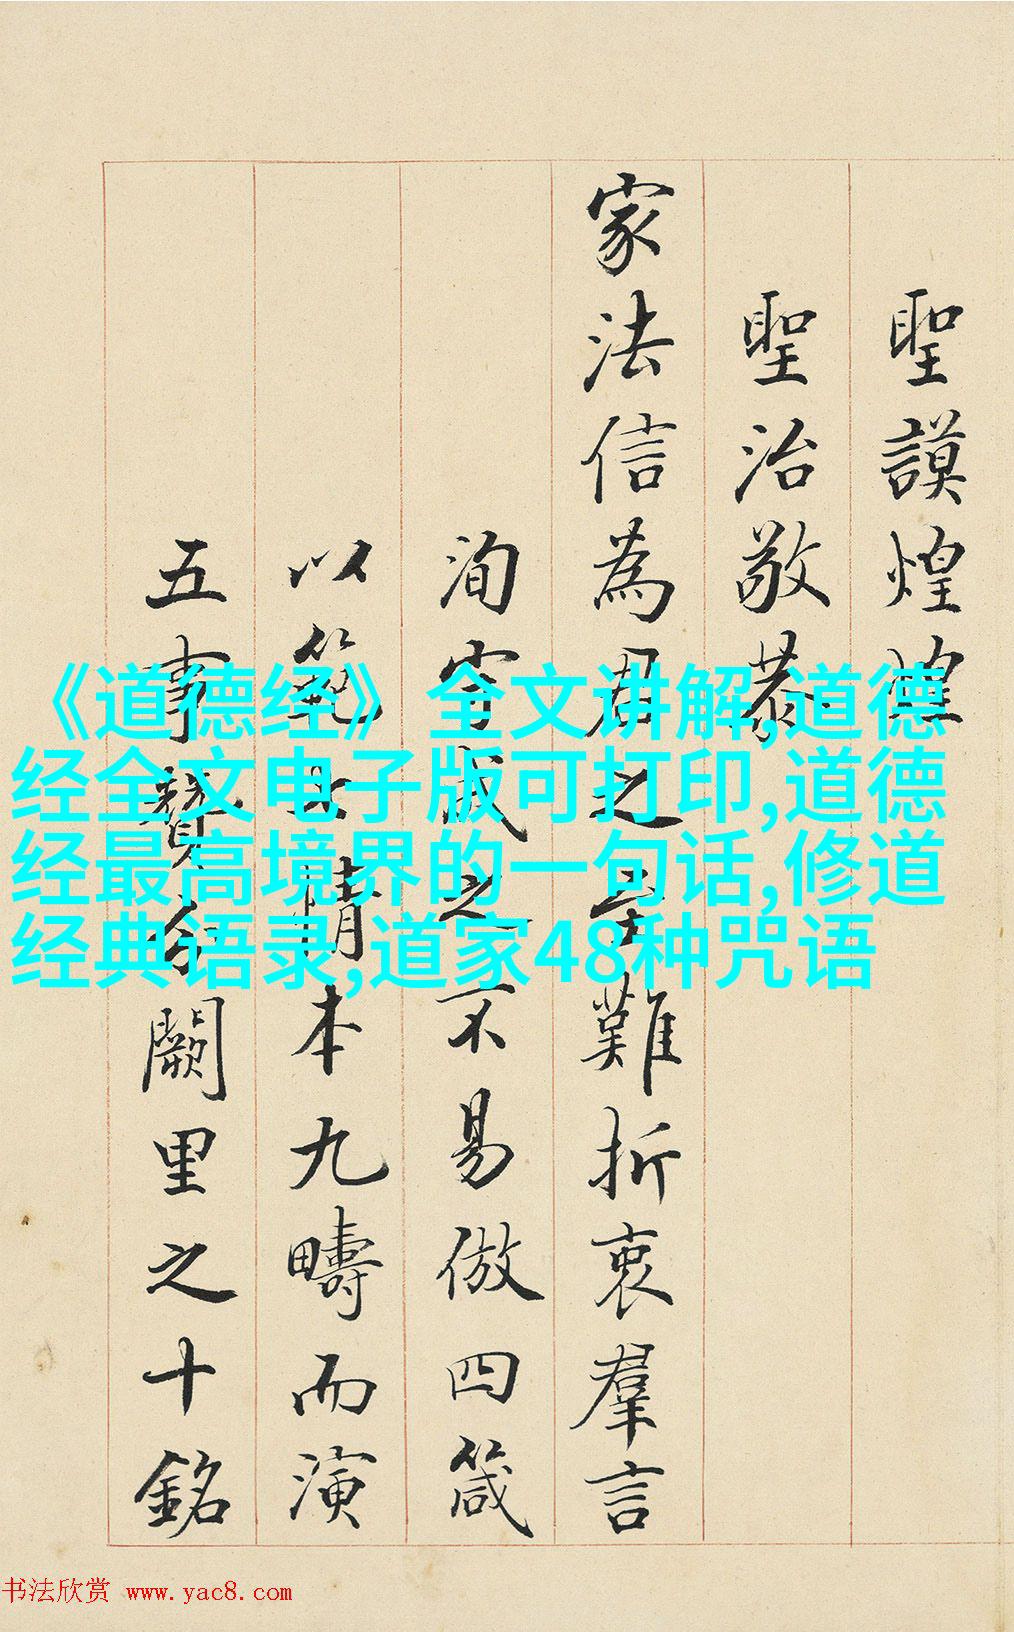 聖謨煌煌
聖治敬恭
家法信為君之至難折衷羣言
洵守成之不易倣四箴
以範七情本九疇而演
五事贊闕里之十銘
《道德经》全文讲解,道德
经全文电子版可打印,道德
经最高境界的一句话,修道
经典语录,道家48种咒语
书法欣赏 www.yac8.com